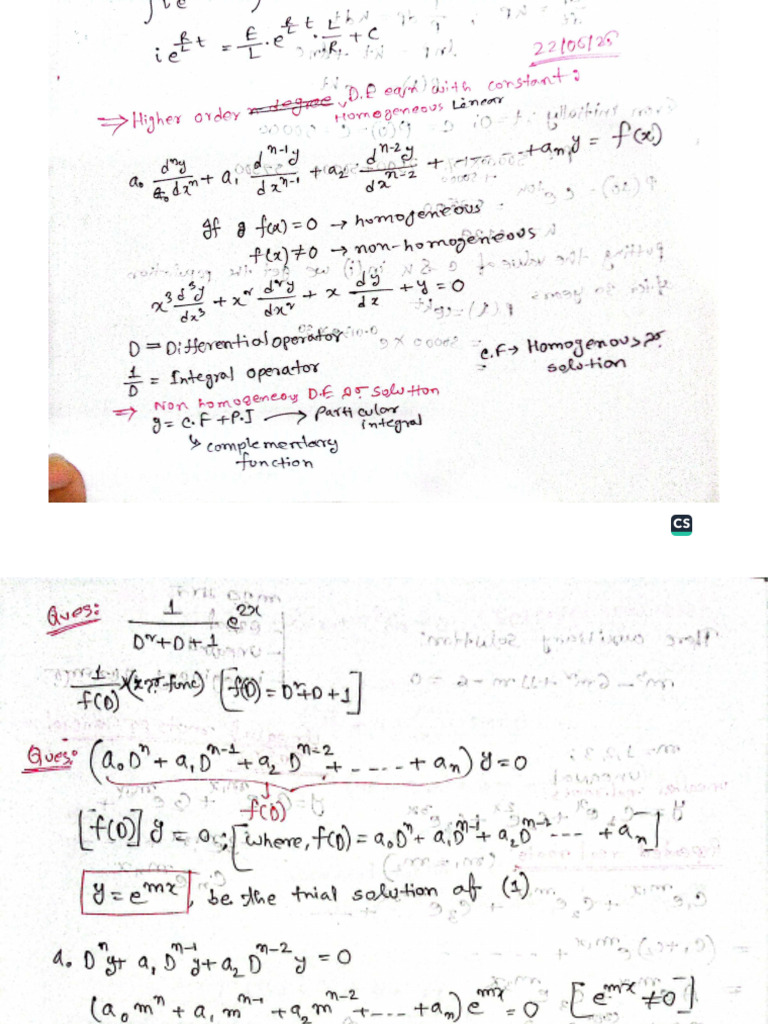 i e^{R/L t} = E/L . e^{R/L t} . L/R + C
22/06/25
⇒ Higher order D.E eqn with constant:
Homogeneous Linear
a₀ dⁿy/dxⁿ + a₁ dⁿ⁻¹y/dxⁿ⁻¹ + a₂ . dⁿ⁻²y/dxⁿ⁻² + - - - - + aₙy = f(x)
If f(x) = 0 → homogeneous
f(x) ≠ 0 → non-homogeneous
x³ d³y/dx³ + x² d²y/dx² + x dy/dx + y = 0
D = Differential operator
1/D = Integral operator
C.F → Homogenous এর
solution
⇒ Non homogeneous D.E এর solution
y = C.F + P.I → Particular
integral
↳ complementary
function
CS
Ques: 1/(D²+D+1) e^{2x}
1/f(D) × (x এর func) [f(D) = D²+D+1]
Ques: (a₀Dⁿ + a₁Dⁿ⁻¹ + a₂Dⁿ⁻² + - - - - + aₙ) y = 0
f(D)
[f(D)] y = 0 ; [where, f(D) = a₀Dⁿ + a₁Dⁿ⁻¹ + a₂Dⁿ⁻² - - - + aₙ]
y = e^{mx} , be the trial solution of (1)
a₀ Dⁿy + a₁ Dⁿ⁻¹y + a₂ Dⁿ⁻²y = 0
(a₀mⁿ + a₁mⁿ⁻¹ + a₂mⁿ⁻² + - - - + aₙ) e^{mx} = 0 [e^{mx} ≠ 0]